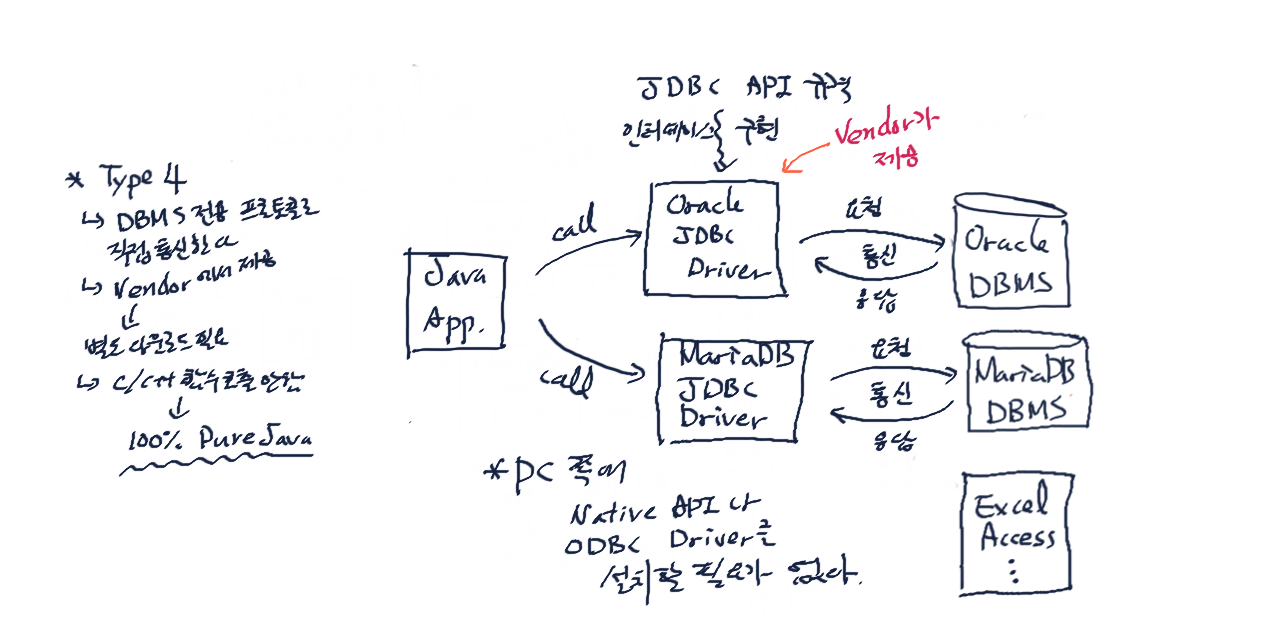 * Type 4
↳ DBMS 전용 프로토콜로
직접 통신한다
↳ Vendor에서 제공
↓
별도 다운로드 필요
↳ C/C++ 함수 호출 안함
↓
100% Pure Java
JDBC API 규칙
인터페이스 구현
Vendor가
제공
Java
App.
call
call
Oracle
JDBC
Driver
요청
통신
응답
Oracle
DBMS
MariaDB
JDBC
Driver
요청
통신
응답
MariaDB
DBMS
Excel
Access
⋮
* PC 쪽에
Native API나
ODBC Driver를
설치할 필요가 없다.